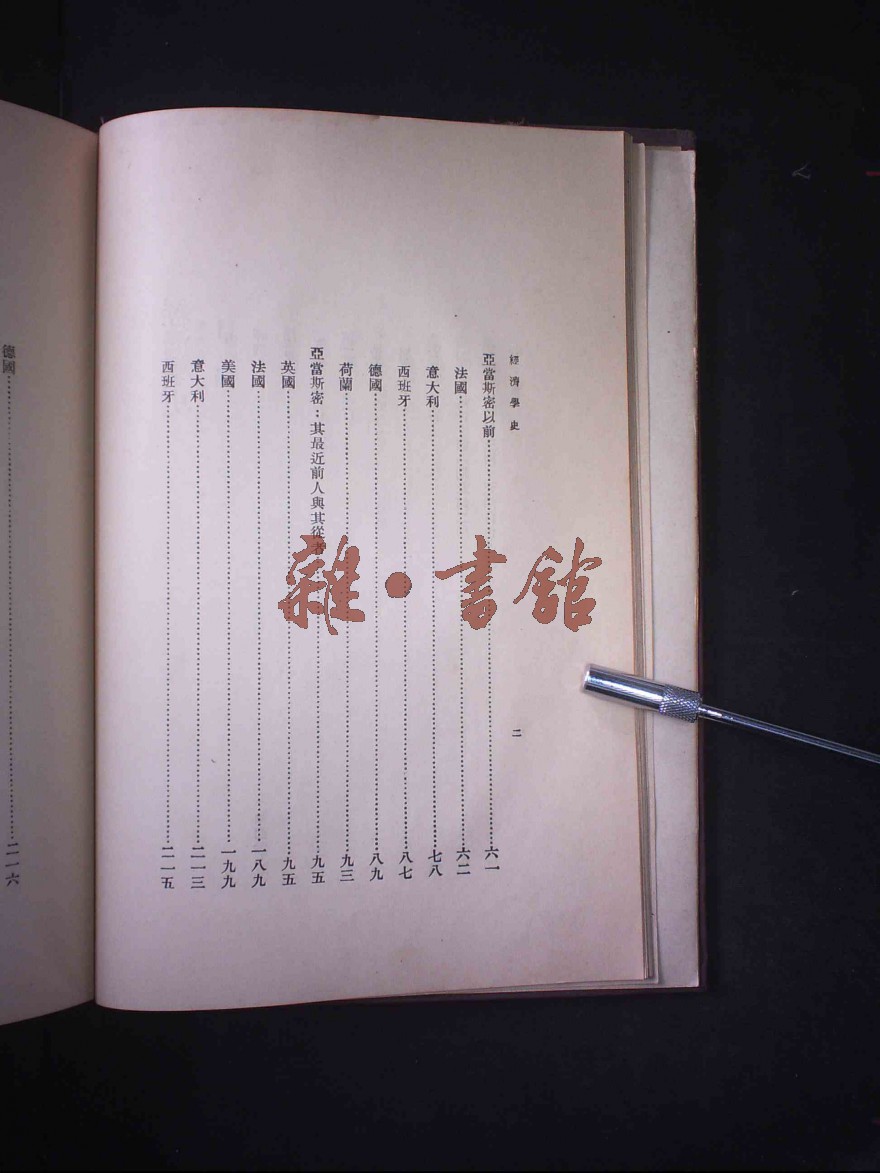 經濟學史
二
亞當斯密以前……六一
法國……六二
意大利……七八
西班牙……八七
德國……八九
荷蘭……九三
亞當斯密：其最近前人與其從者……九五
英國……九五
法國……一八九
美國……一九九
意大利……二一三
西班牙……二一五
德國……二一六
雜·書館